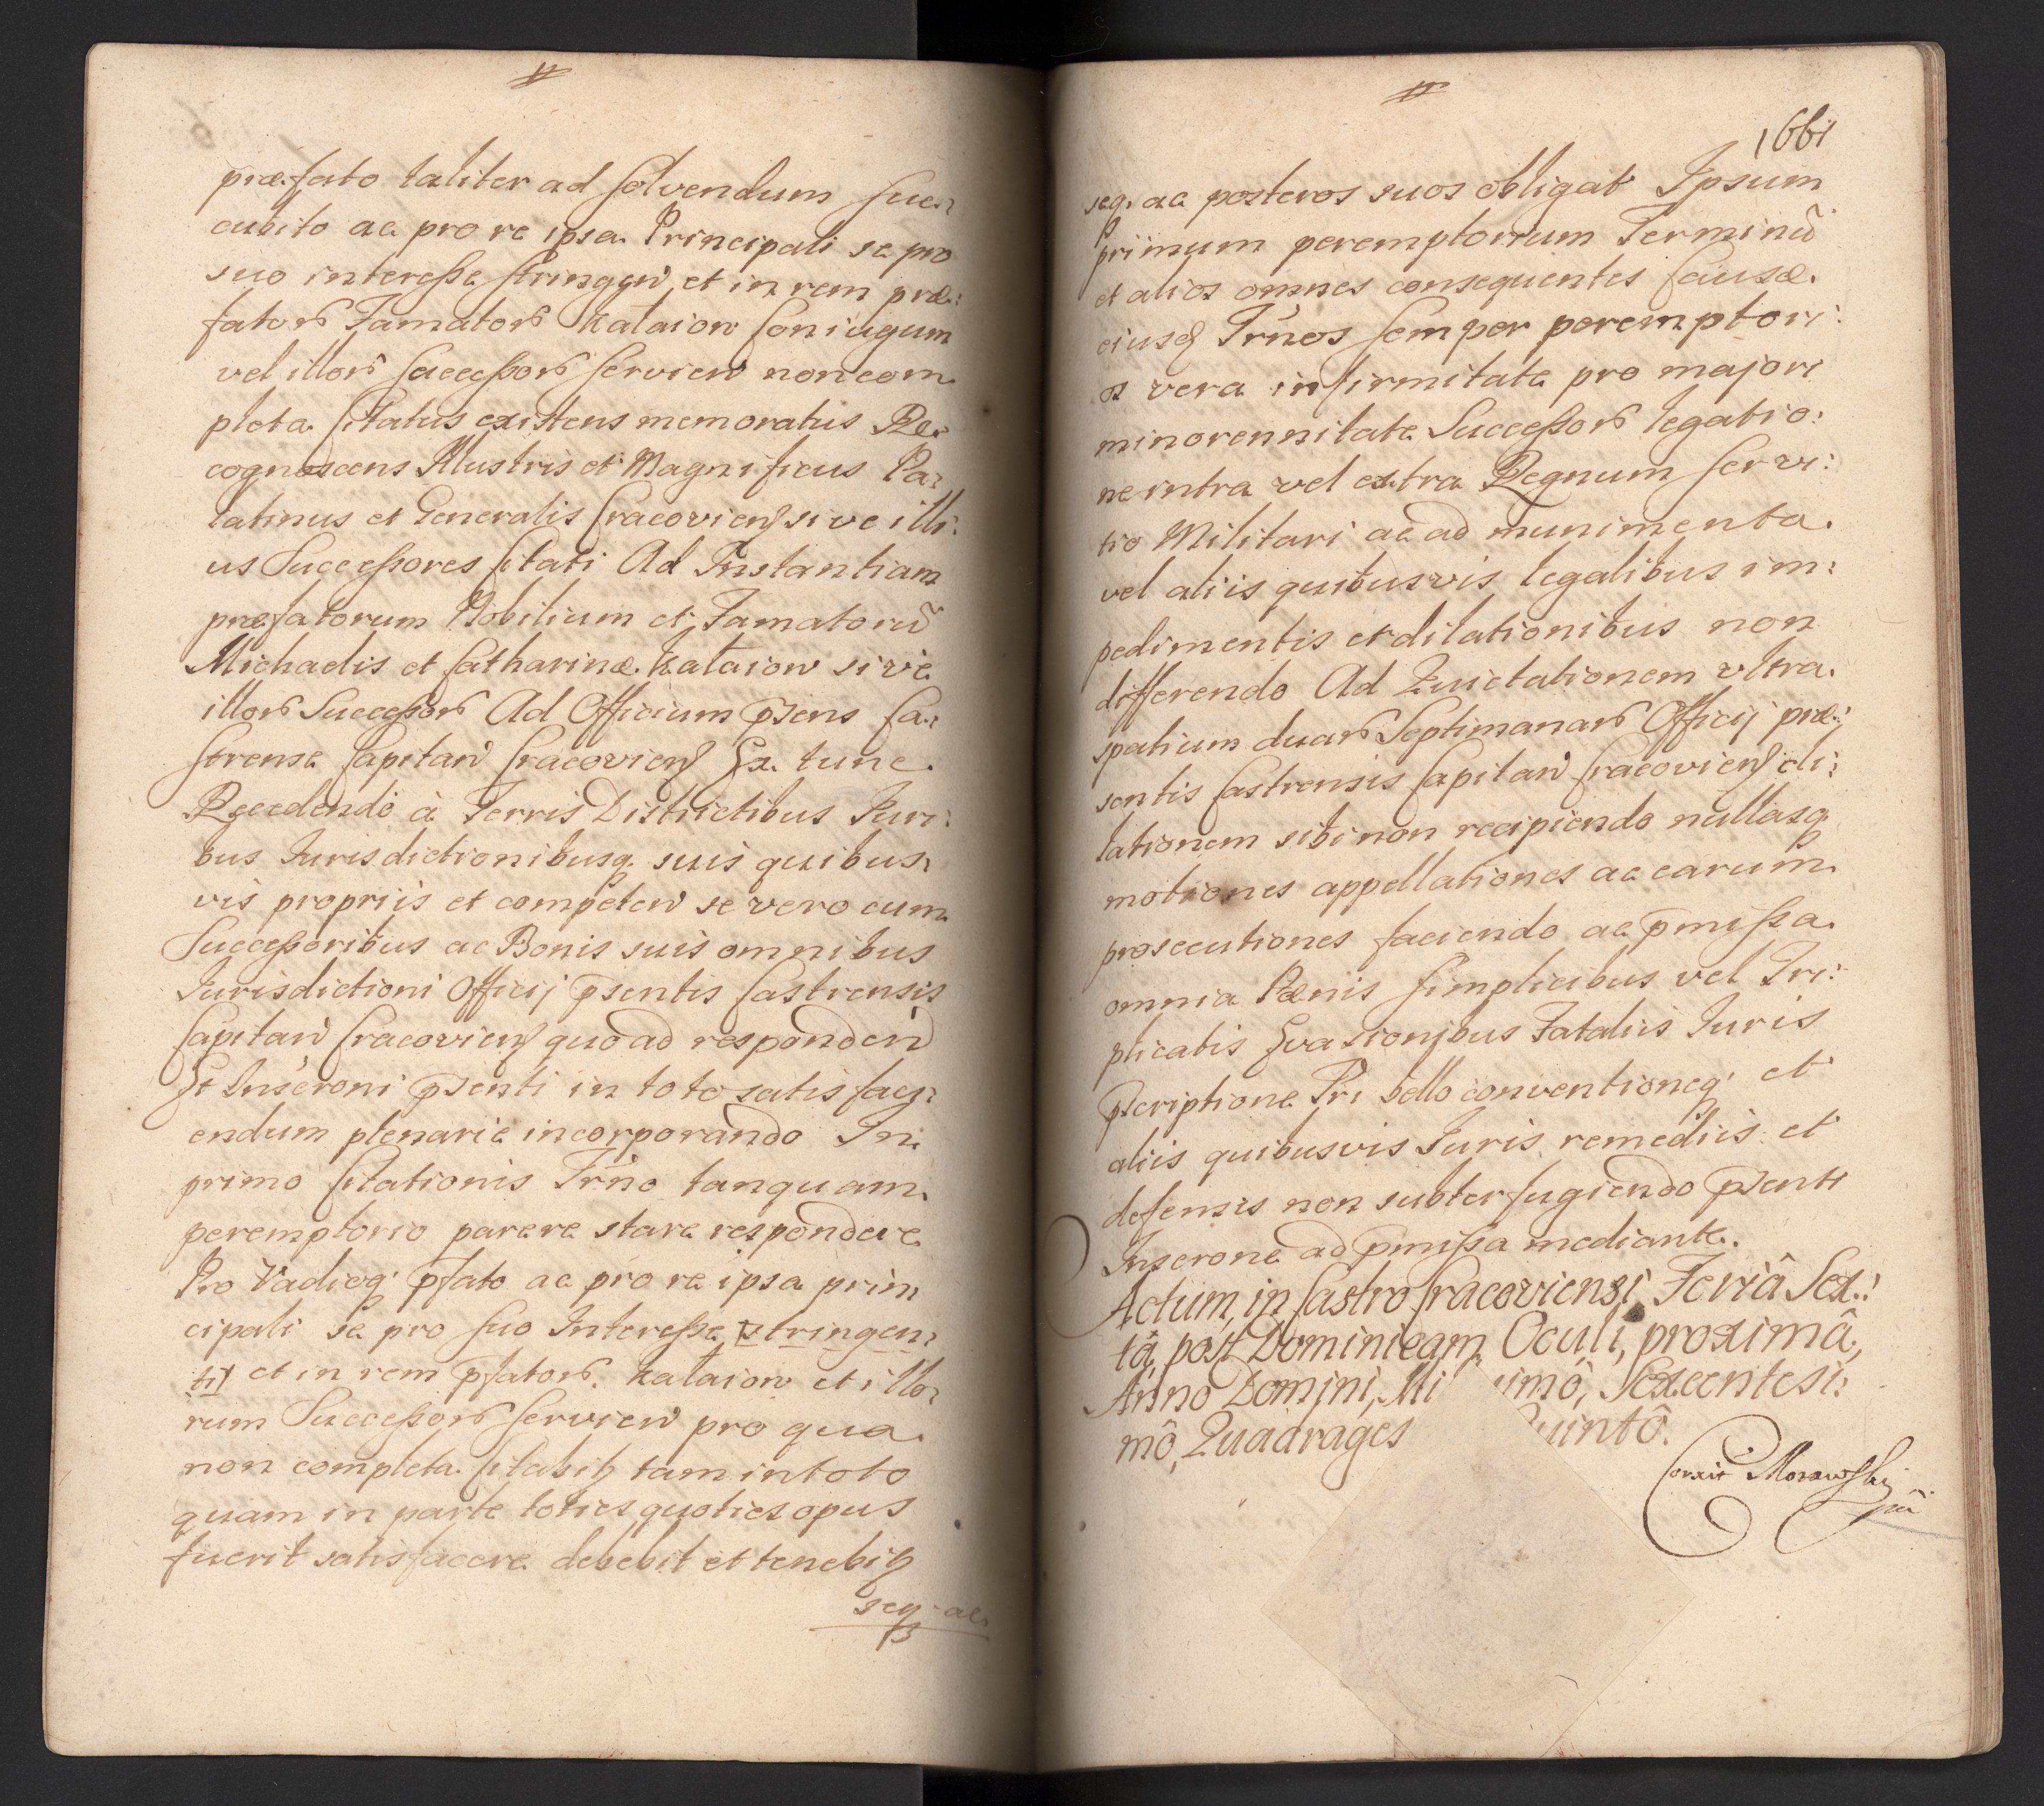 præfato taliter ad solvendum suc¬
cubito ac pro re ipsa Principali se pro
suo interesse stringen et in rem præ:
fatorum Famatorum Kałaiow Coniugum
vel illorum Successorum servien non com
pleta Citatus existens memoratus Re¬
cognoscens Illustris et Magnificus Pa¬
latinus et Generalis Cracovien sive illi:
us Successores Citati Ad Instantiam
præfatorum Nobilium et Famatorū
Michaelis et Catharinæ Kałaiow sive
illorum Successorum Ad Officium p̄sens Ca¬
strense Capitan Cracovien Ex tunc
Recedendo à Terris Districtibus Juri:
bus Jurisdictionibusq suis quibus¬
vis propriis et competen se vero cum
Successoribus ac Bonis suis omnibus
Jurisdictioni Officij p̄sentis Castrensis
Capitan Cracovien quo ad responden
Et Inscroni p̄senti in toto satisfaci¬
endum plenarie incorporando In
primo Citationis Trno tanquam
peremptorio parere stare respondere
Pro Vadioq p̄fato ac pro re ipsa prin
cipali se pro suo Interesse stringen¬
ti et in rem p̄fatorum Kałaiow et illo¬
rum Successorum servien pro qua
non completa Citabitur tam in toto
quam in parte toties quoties opus
fuerit satisfacere debebit et tenebitur
seq ac
1661
seq ac posteros suos obligat Ipsum
primum peremptorium Terminū
et alios omnes consequentes Causæ
eiusq Trnos semper peremptori:
os vera infirmitate pro majori
minorennitate Successorum legatio:
ne intra vel extra Regnum servi:
tio Militari ac ad munimenta
vel aliis quibusvis legalibus im:
pedimentis et dilationibus non
differendo Ad Quietationem ultra
spatium duarum Septimanarum Officij præ:
sentis Castrensis Capitan Cracovien di:
lationem sibi non recipiendo nullasq
motiones appellationes ac earum
prosecutiones faciendo ac p̄missa
omnia Pænis simplicibus vel Tri:
plicatis Evasionibus Fataliis Juris
p̄scriptione Pri bello conventioneq et
aliis quibusvis Juris remediis et
defensis non subterfugiendo p̄senti
Inscrone ad p̄missa mediante.
Actum in Castro Cracoviensi Feriâ Sex:
tâ, post Dominicam Oculi, proximâ,
Anno Domini, Mi imô, Sexcentesi:
mô, Quadrages Quintô.
Morawski